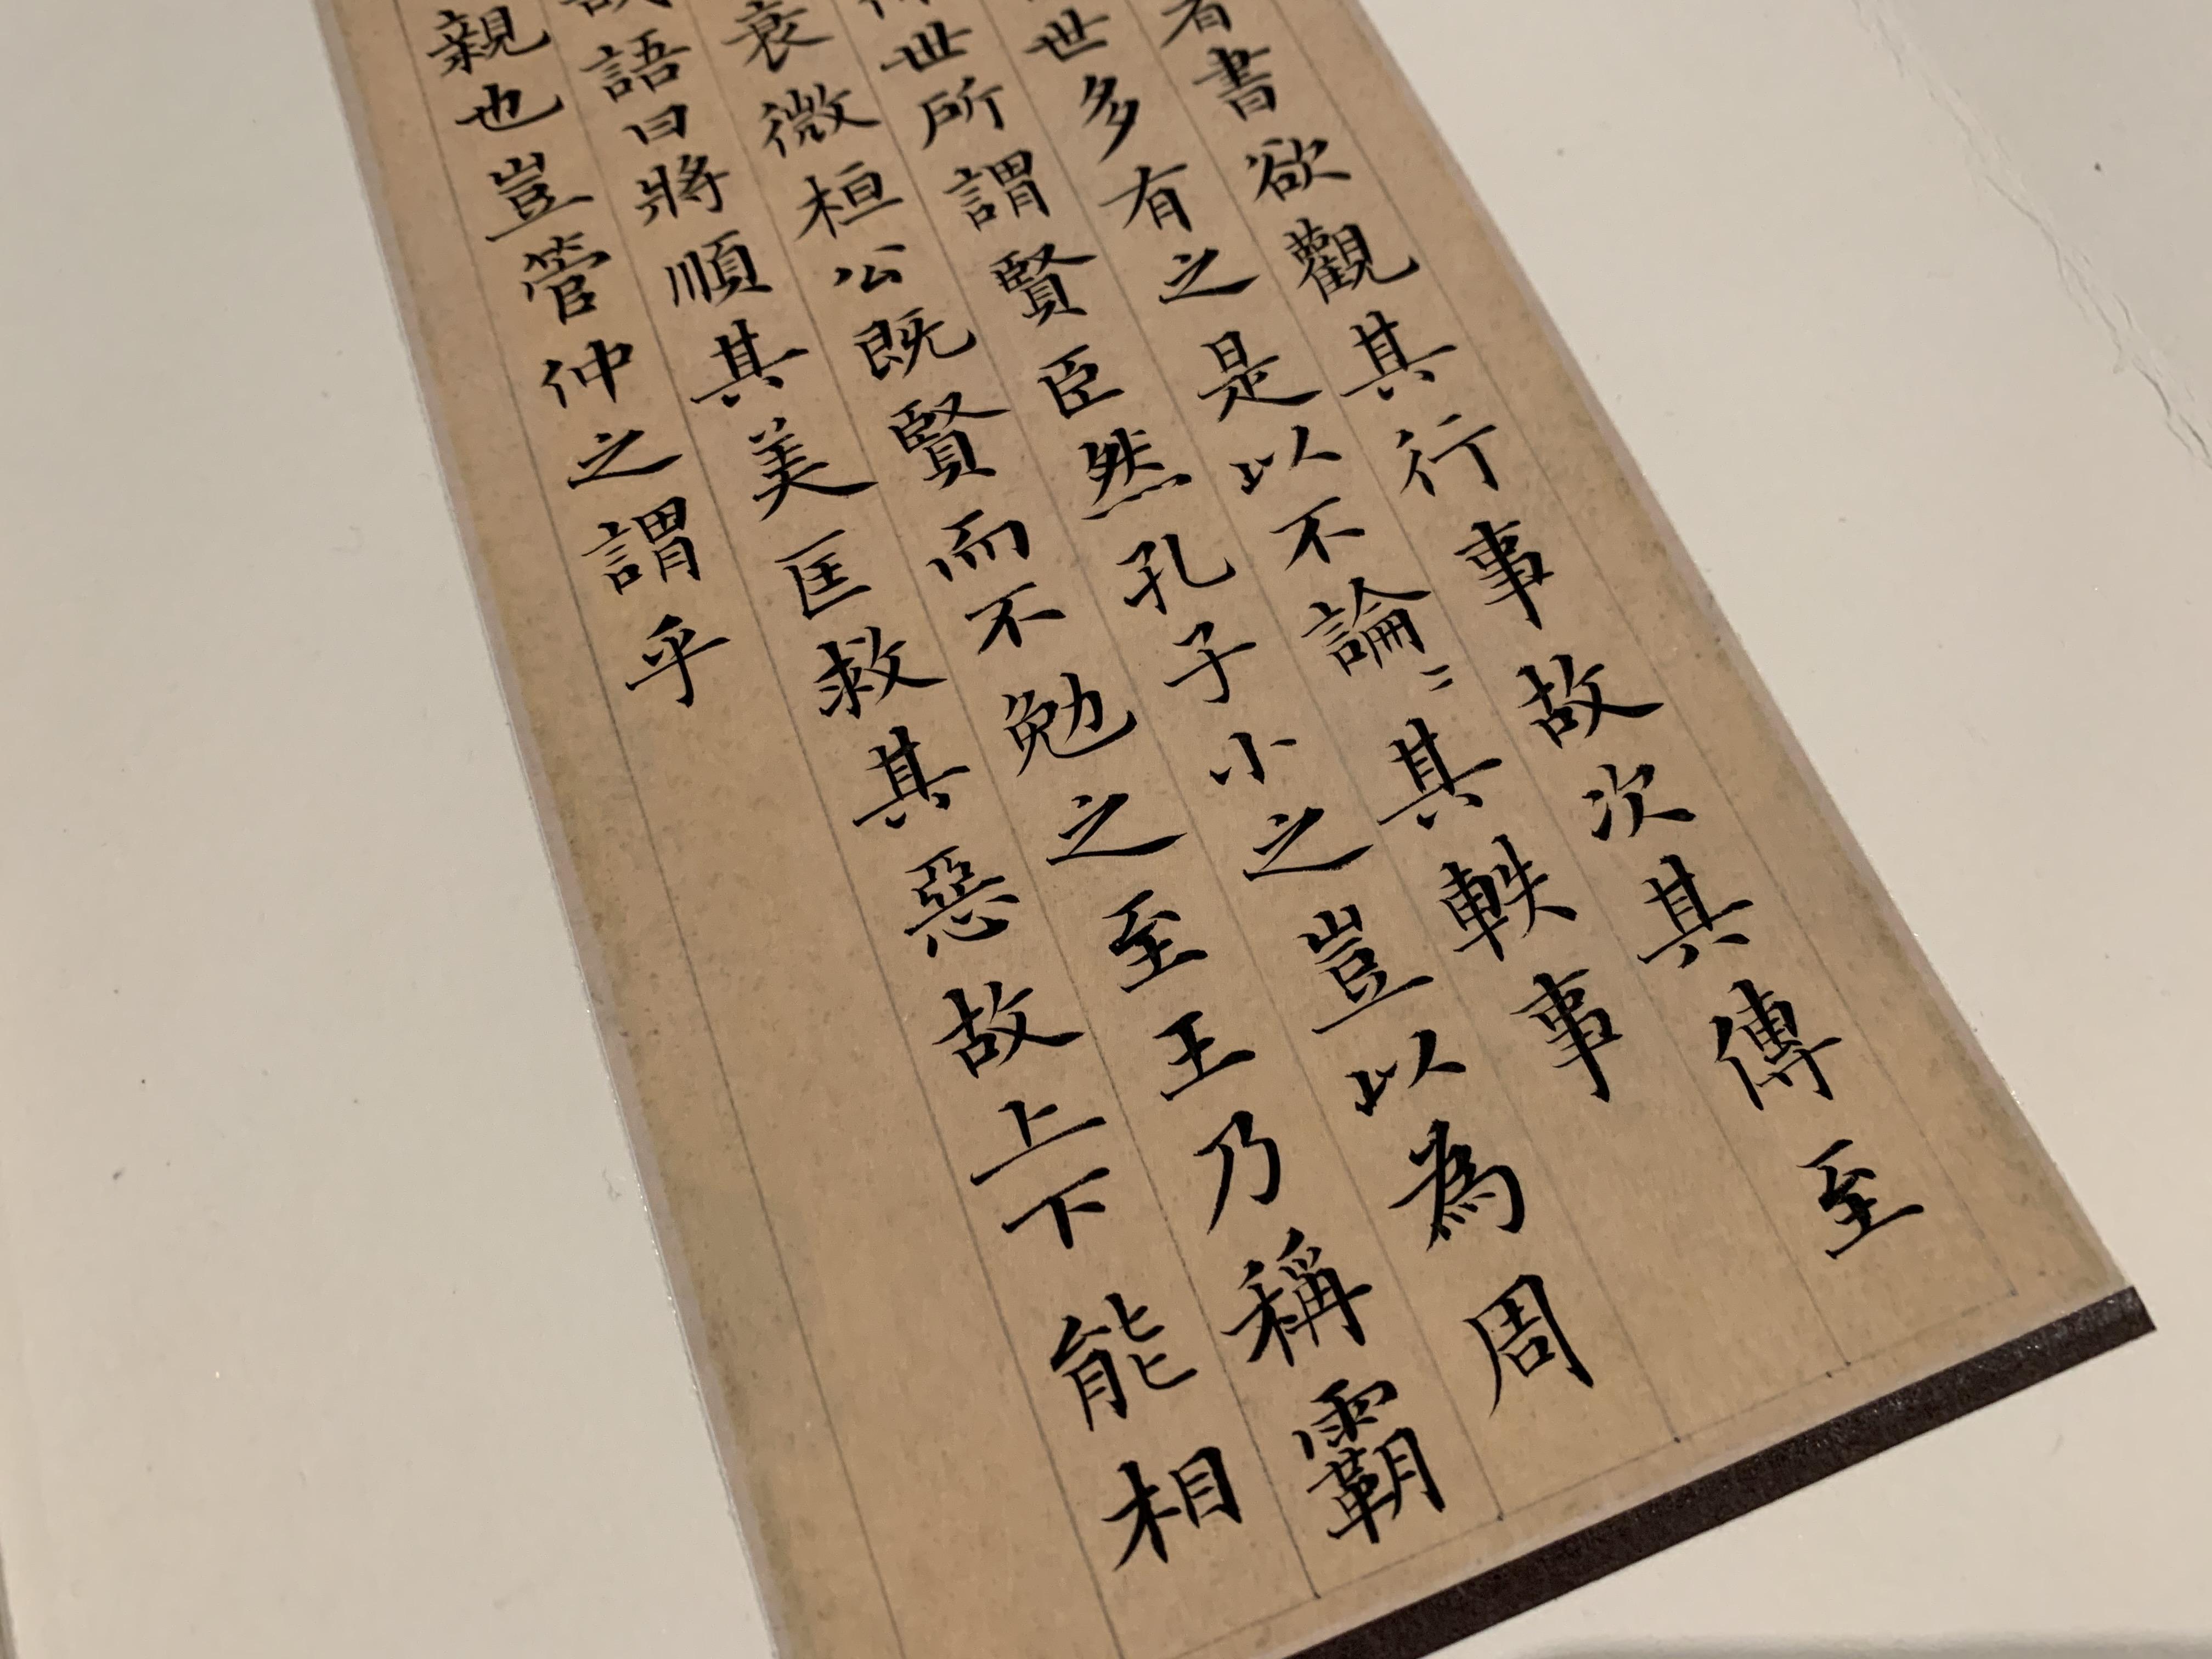 著書欲觀其行事故次其傳至
世多有之是以不論〻其軼事
世所謂賢臣然孔子小之豈以為周
衰微桓公既賢而不勉之至王乃稱霸
語曰將順其美匡救其惡故上下能相
親也豈管仲之謂乎